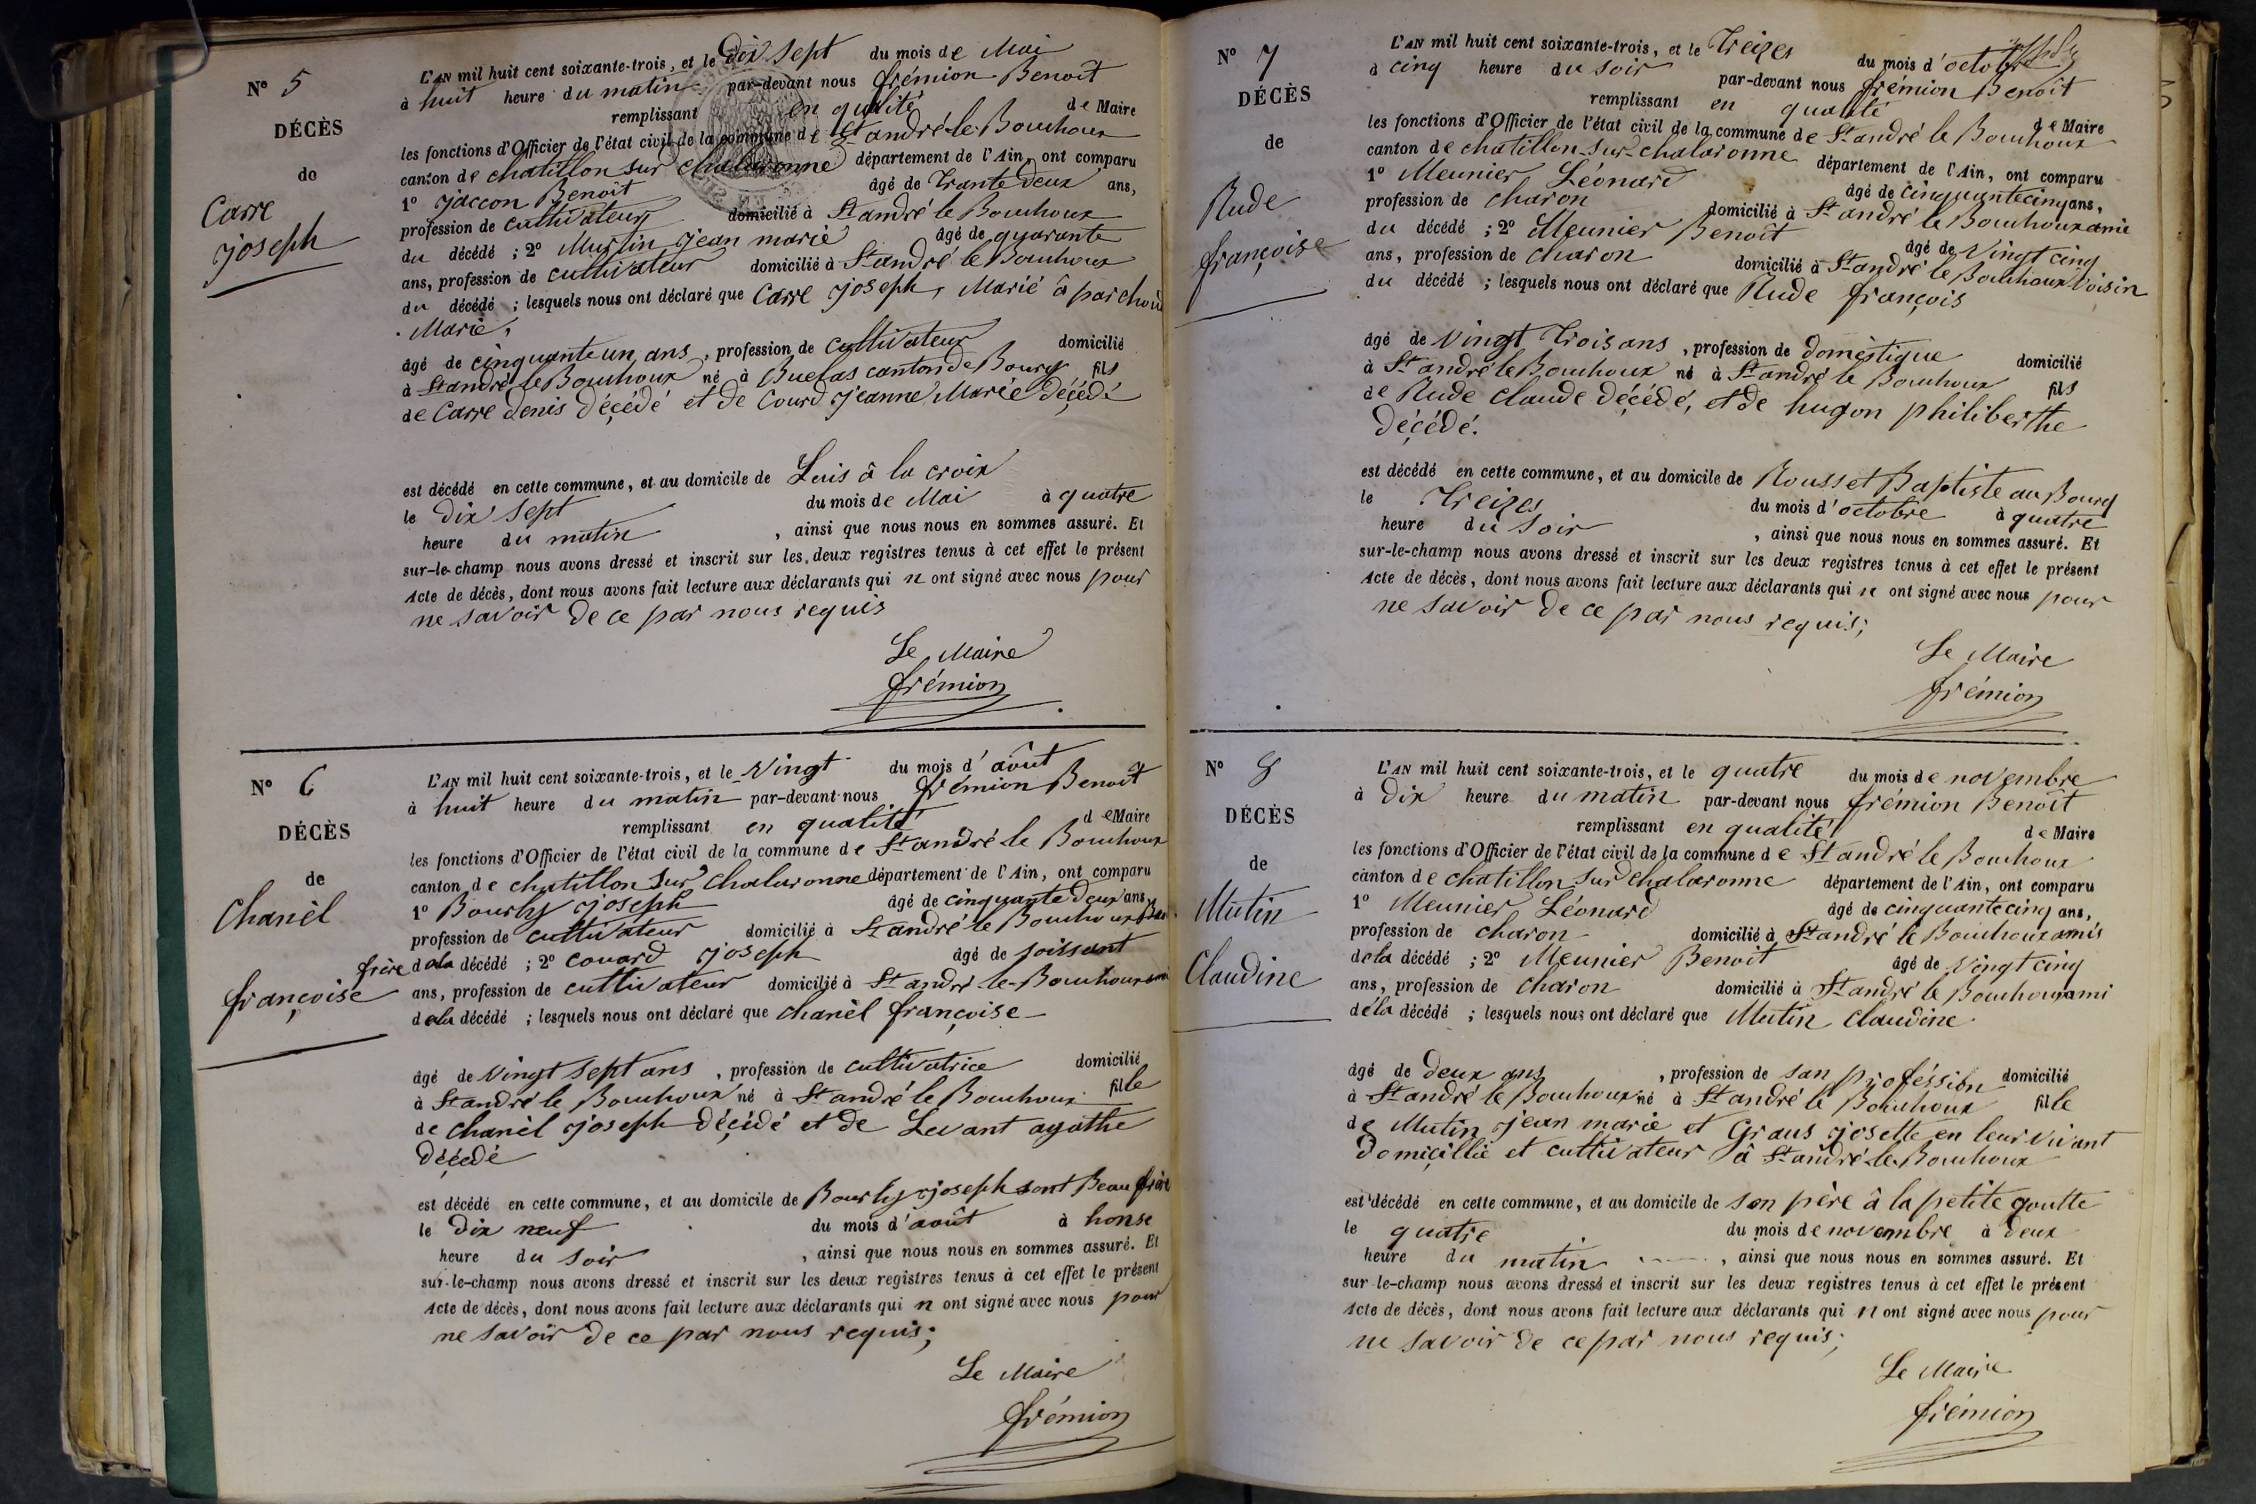 N° 5
DÉCÈS
de
Carre
joseph
L'AN mil huit cent soixante-trois, et le Dix sept du mois de Mai
à huit heure du matin par-devant nous frémion Benoît
remplissant en qualité de Maire
les fonctions d'Officier de l'état civil de la commune de St andré le Bouchoux
canton de chatillon sur chalaronne département de l'Ain, ont comparu
1° jaccon Benoit âgé de Trante deux ans,
profession de cultivateur domicilié à St andré le Bouchoux
du décédé ; 2° Mutin jean marie âgé de quarante
ans, profession de cultivateur domicilié à St andré le Bouchoux
du décédé ; lesquels nous ont déclaré que Carre joseph, Marié à parchoud
Marie,
âgé de cinquante un ans, profession de cultivateur domicilié
à St andré le Bouchoux né à Buelas canton de Bourg fils
de Carre denis déçédé et de Courd jeanne Marie déçédé
est décédé en cette commune, et au domicile de Luis à la croix
le Dix sept du mois de Mai à quatre
heure du matin, ainsi que nous nous en sommes assuré. Et
sur-le-champ nous avons dressé et inscrit sur les deux registres tenus à cet effet le présent
Acte de décès, dont nous avons fait lecture aux déclarants qui n ont signé avec nous pour
ne savoir de ce par nous requis
Le Maire
frémion
N° 6
DÉCÈS
de
Chanèl
françoise
L'AN mil huit cent soixante-trois, et le Vingt du mois d'août
à huit heure du matin par-devant nous frémion Benoît
remplissant en qualité de Maire
les fonctions d'Officier de l'état civil de la commune de St andré le Bouchoux
canton de chatillon sur chalaronne département de l'Ain, ont comparu
1° Bourly joseph âgé de cinquante deux ans,
profession de cultivateur domicilié à St andré le Bouchoux Beau
frère de la décédé ; 2° couard joseph âgé de soissant
ans, profession de cultivateur domicilié à St andré le Bouchoux ami
de la décédé ; lesquels nous ont déclaré que chanèl françoise
âgé de Vingt sept ans, profession de cultivatrice domicilié
à St andré le Bouchoux né à St andré le Bouchoux fille
de chanèl joseph déçédé et de Levant agathe
déçédé
est décédé en cette commune, et au domicile de Bourly joseph sont Beau frère
le dix neuf du mois d'août à honse
heure du soir, ainsi que nous nous en sommes assuré. Et
sur-le-champ nous avons dressé et inscrit sur les deux registres tenus à cet effet le présent
Acte de décès, dont nous avons fait lecture aux déclarants qui n ont signé avec nous pour
ne savoir de ce par nous requis;
Le Maire
frémion
N° 7
DÉCÈS
de
Rude
françoise
L'AN mil huit cent soixante-trois, et le Treizes du mois d'octobre
à cinq heure du soir par-devant nous frémion Benoît
remplissant en qualité de Maire
les fonctions d'Officier de l'état civil de la commune de St andré le Bouchoux
canton de chatillon-sur-chalaronne département de l'Ain, ont comparu
1° Meunier Léonard âgé de cinquante cinq ans,
profession de charon domicilié à St andré le Bouchoux ami
du décédé ; 2° Meunier Benoît âgé de Vingt cinq
ans, profession de charon domicilié à St andré le Bouchoux Voisin
du décédé ; lesquels nous ont déclaré que Rude françois
âgé de Vingt Trois ans, profession de domèstique domicilié
à St andré le Bouchoux né à St andré le Bouchoux fils
de Rude Claude déçédé, et de hugon philiberthe
déçédé.
est décédé en cette commune, et au domicile de Rousset Baptiste au Bourg
le Treizes du mois d'octobre à quatre
heure du soir, ainsi que nous nous en sommes assuré. Et
sur-le-champ nous avons dressé et inscrit sur les deux registres tenus à cet effet le présent
Acte de décès, dont nous avons fait lecture aux déclarants qui n ont signé avec nous pour
ne savoir de ce par nous requis;
Le Maire
frémion
N° 8
DÉCÈS
de
Mutin
Claudine
L'AN mil huit cent soixante-trois, et le quatre du mois de novembre
à Dix heure du matin par-devant nous frémion Benoît
remplissant en qualité de Maire
les fonctions d'Officier de l'état civil de la commune de St andré le Bouchoux
canton de chatillon sur chalaronne département de l'Ain, ont comparu
1° Meunier Léonard âgé de cinquante cinq ans,
profession de charon domicilié à St andré le Bouchoux amis
de la décédé ; 2° Meunier Benoit âgé de Vingt cinq
ans, profession de charon domicilié à St andré le Bouchoux ami
de la décédé ; lesquels nous ont déclaré que Mutin Claudine
âgé de deux ans, profession de san proféssion domicilié
à St andré le Bouchoux né à St andré le Bouchoux fille
de Mutin jean marie et Graus josette en leur vivant
domiçillié et cultivateur à St andré le Bouchoux
est décédé en cette commune, et au domicile de son père à la petite goutte
le quatre du mois de novembre à deux
heure du matin, ainsi que nous nous en sommes assuré. Et
sur-le-champ nous avons dressé et inscrit sur les deux registres tenus à cet effet le présent
Acte de décès, dont nous avons fait lecture aux déclarants qui n ont signé avec nous pour
ne savoir de ce par nous requis;
Le Maire
frémion